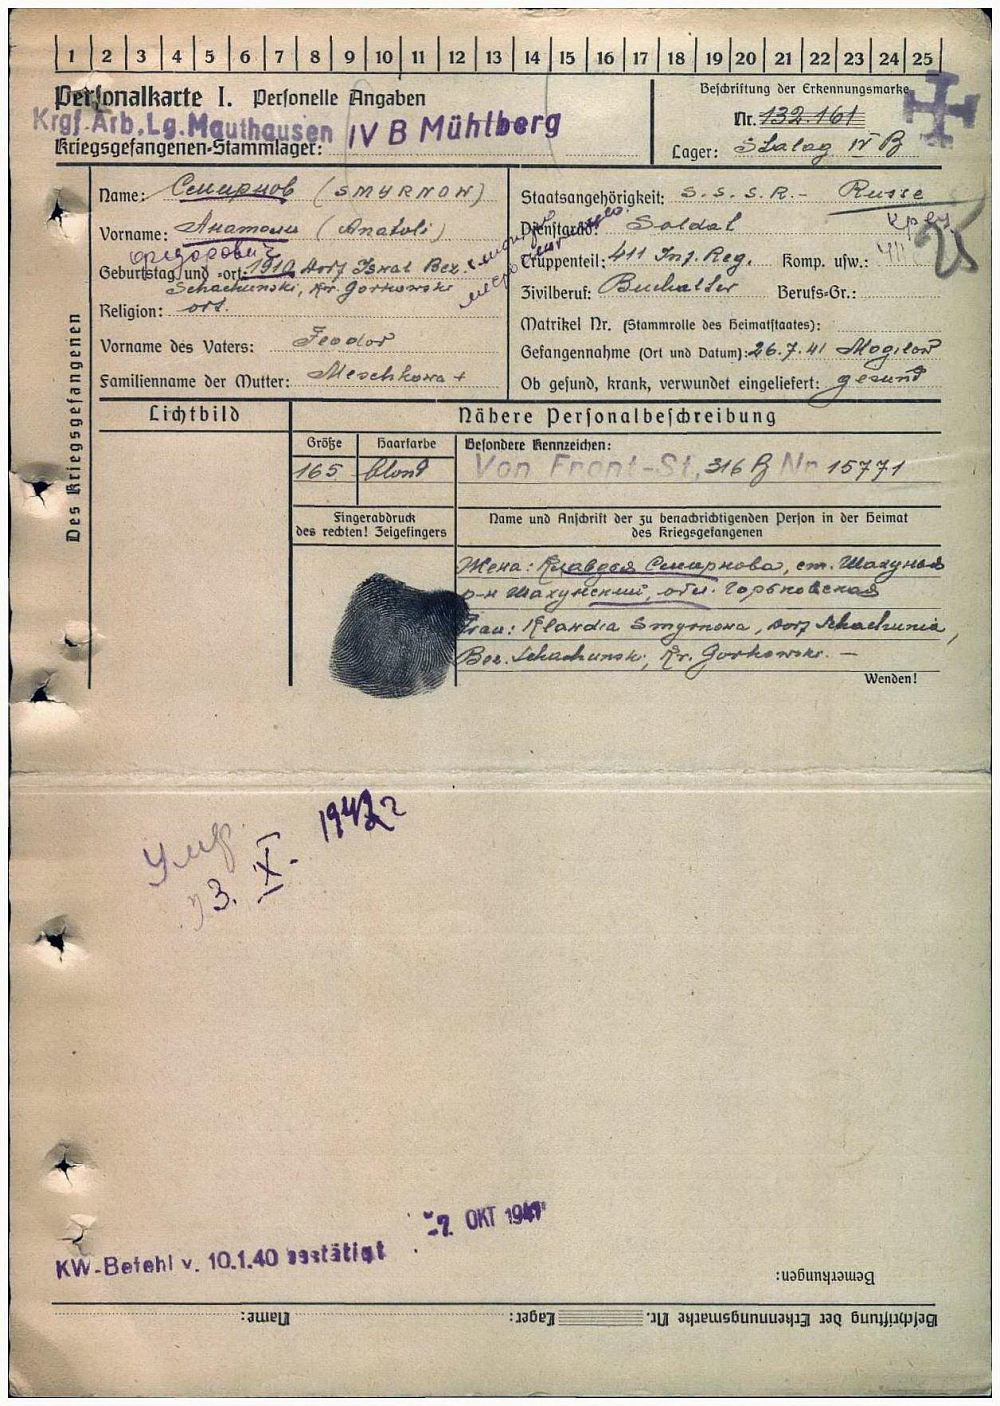 1 2 3 4 5 6 7 8 9 10 11 12 13 14 15 16 17 18 19 20 21 22 23 24 25
Personalkarte I. Personelle Angaben
Krgf. Arb. Lg. Mauthausen IV B Mühlberg
Kriegsgefangenen-Stammlager:
Beschriftung der Erkennungsmarke
Nr. 132.161
Lager: Stalag IV B
Des Kriegsgefangenen
Name: Смирнов (SMYRNOW)
Vorname: Анатоли (Anatoli)
Федорович
Geburtstag und -ort: 1910 Dorf Bez.
Schachunski, Kr. Gorkowski
Religion: ort.
Vorname des Vaters: Feodor
Familienname der Mutter: Meschkowa +
Staatsangehörigkeit: S.S.S.R.- Russe
Dienstgrad: Soldat
Truppenteil: 411 Inf. Reg. Komp. usw.:
25
Zivilberuf: Buchalter Berufs-Gr.:
Matrikel Nr. (Stammrolle des Heimatstaates):
Gefangennahme (Ort und Datum): 26.7.41 Mogilow
Ob gesund, krank, verwundet eingeliefert: gesund
Lichtbild
Nähere Personalbeschreibung
Größe Haarfarbe Besondere Kennzeichen:
165 blond Von Front-St. 316 B Nr 15771
Fingerabdruck
des rechten! Zeigefingers
Name und Anschrift der zu benachrichtigenden Person in der Heimat
des Kriegsgefangenen
Жена: Клавдея Смирнова, ст. Шахунья
р-н Шахунский, обл. Горьковская
Frau: Klawdia Smyrnowa, Dorf Schachunia,
Bez. Schachunski, Kr. Gorkowski. —
Wenden!
Умер
3. X. 1942 г
KW-Befehl v. 10.1.40 bestätigt
-7. OKT 1941
Bemerkungen:
Beschriftung der Erkennungsmarke Nr. Lager: Name: